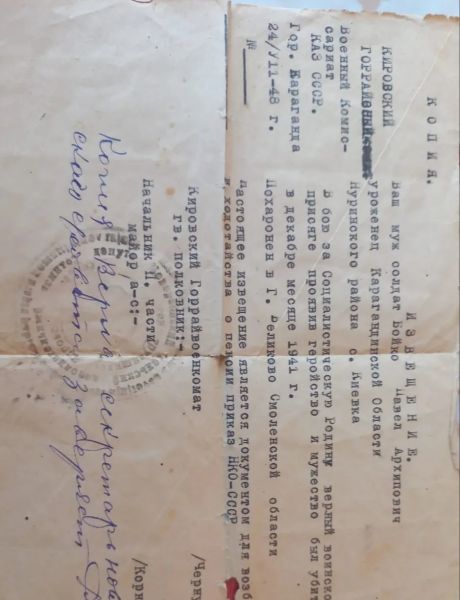 КОПИЯ.
ИЗВЕЩЕНИЕ.
КИРОВСКИЙ
ГОРРАЙ
Военный Комис-
сариат
КАЗ СССР.
Гор. Караганда
24/УІІ-48 г.
№
Ваш муж солдат Бойко Павел Архипович
уроженец Карагандинской Области
Нуринского района с. Киевка
В бою за Социалистическую Родину верный воинско
присяге проявив геройство и мужество был убит
в декабре месяце 1941 г.
Похоронен в Г. Великово Смоленской области
Настоящее извещение является документом для возб
ходотайства о пенсии приказ НКО-СССР
Кировский Горрайвоенкомат
гв. полковник:- /Черну
Начальник П. части
майор а-с:- /Корн
Копия верна секретарь
заверяет